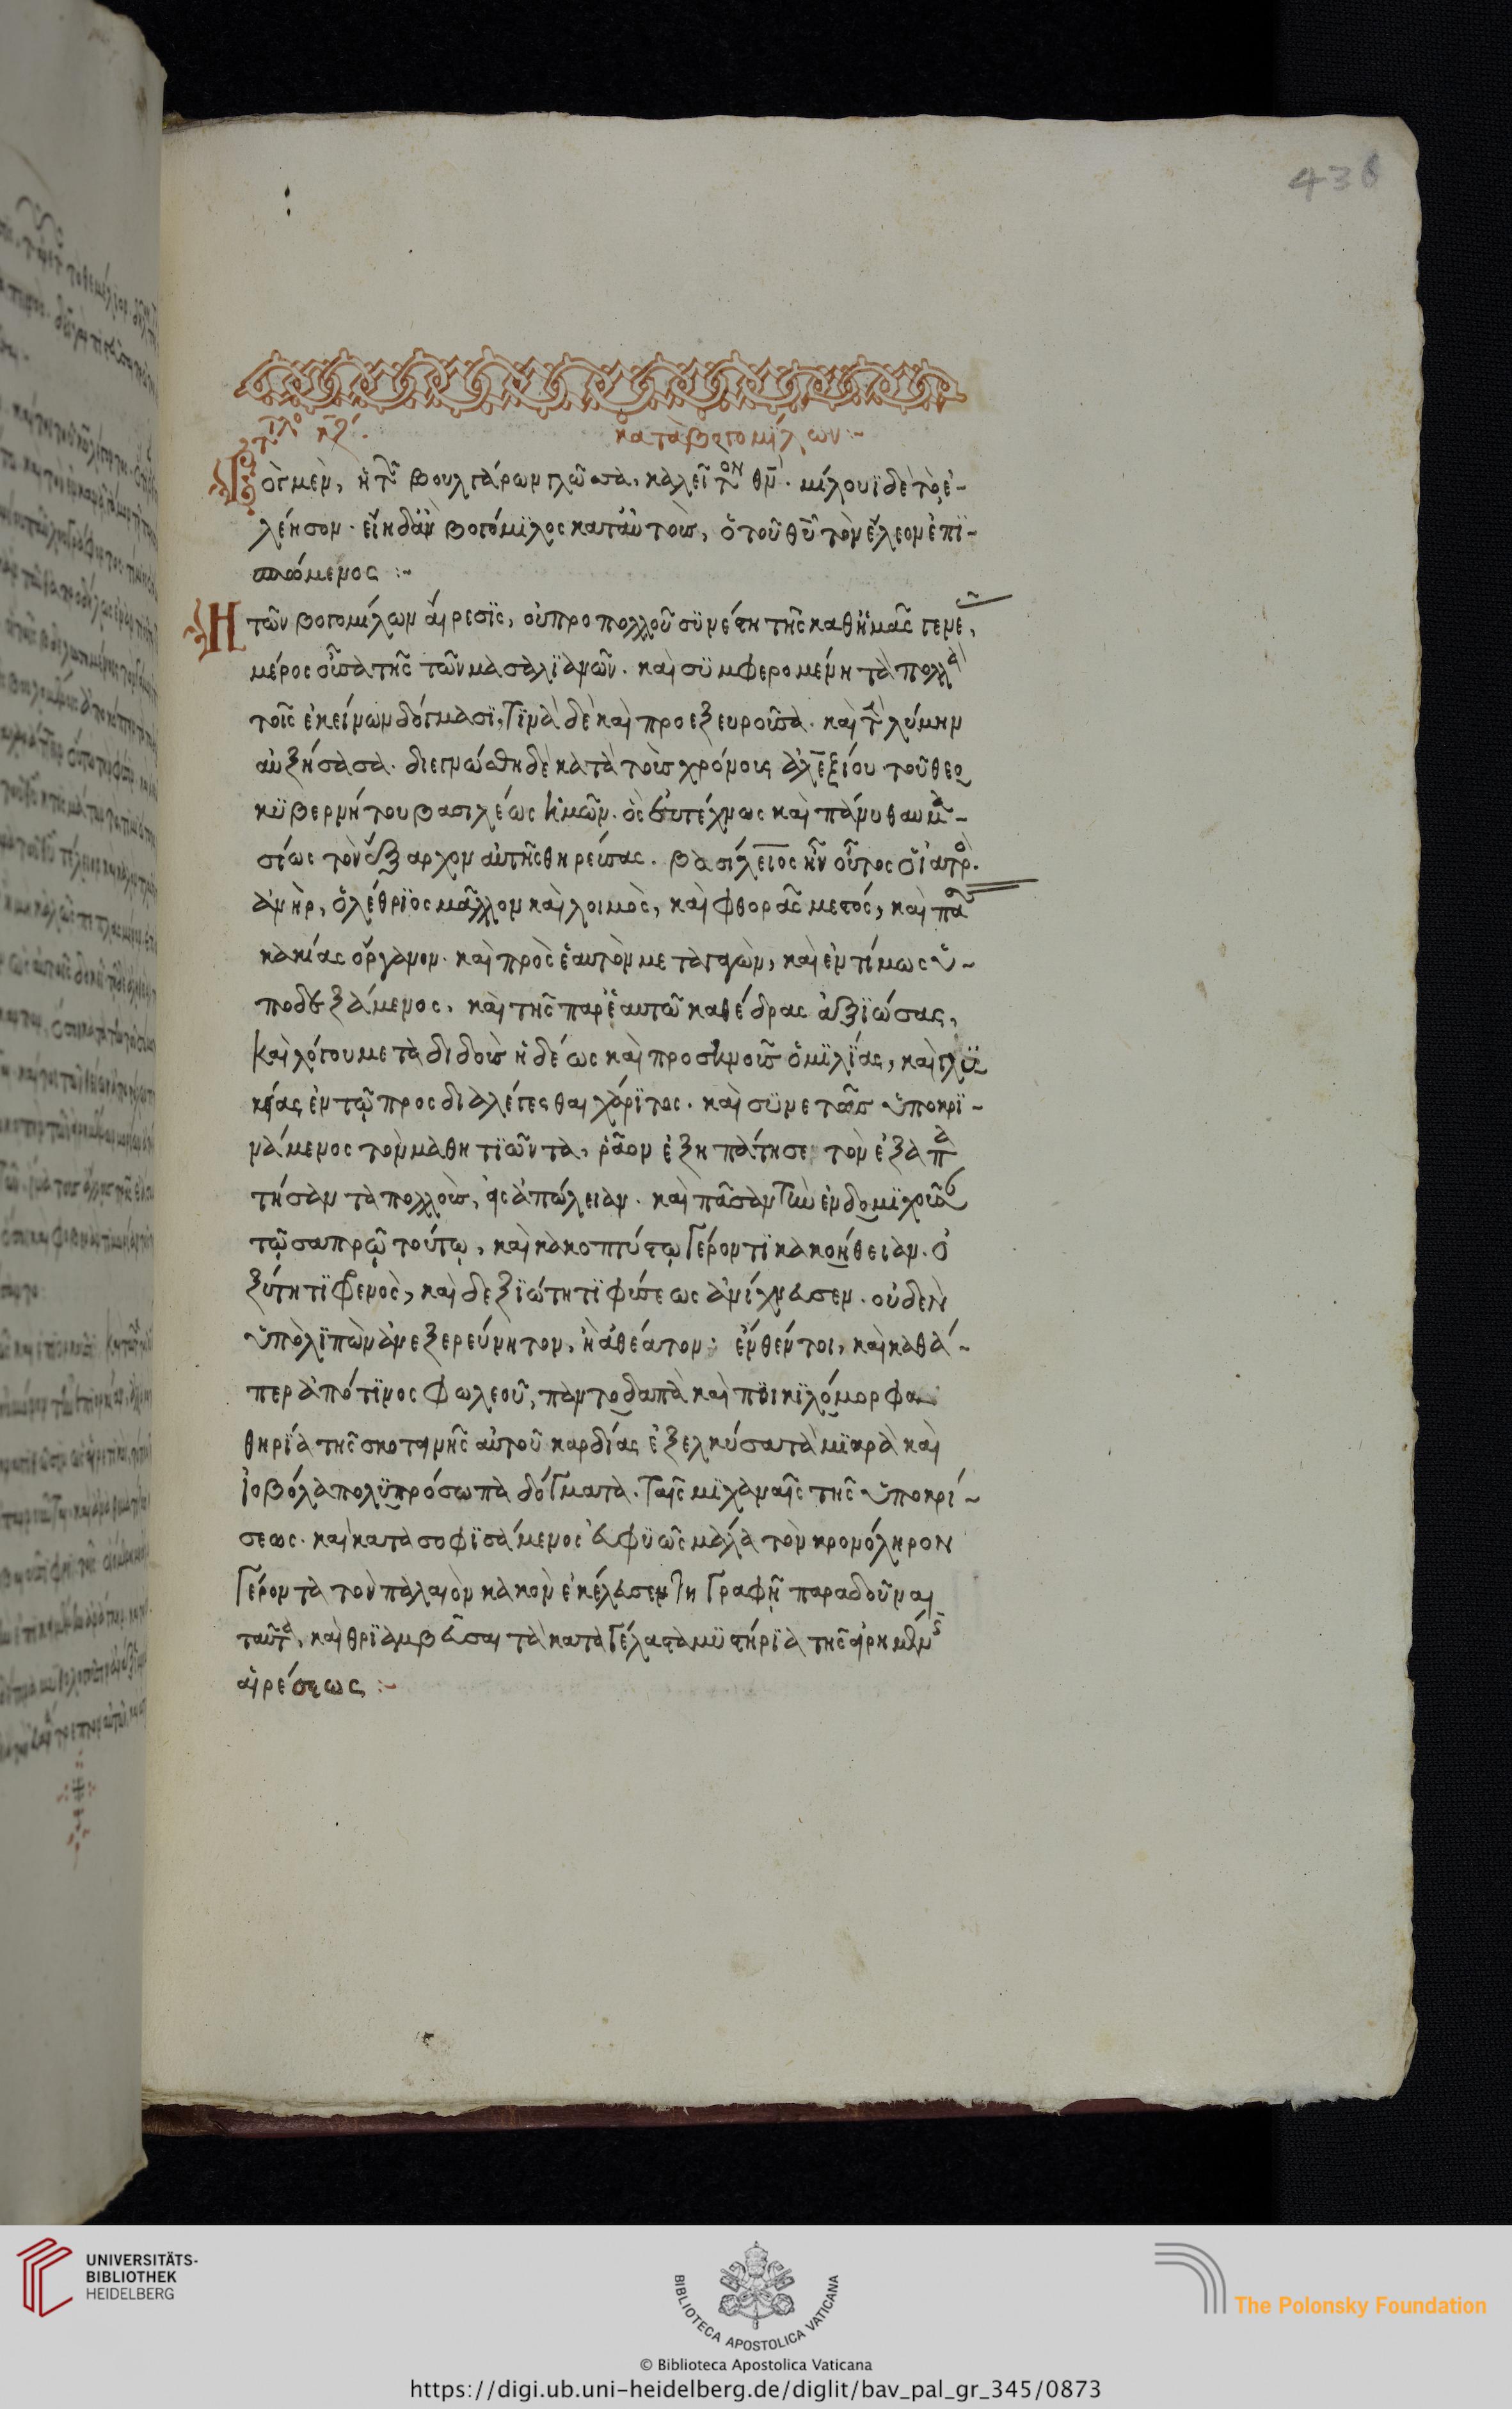 436
τιτλο κζ΄. κατὰ βογομίλων:-
Βὸγ μὲν, ἡ τῶν βουλγάρων γλῶσσα, καλεῖ τὸν θν̄. μίλουϊ δὲ τὸ ἐ-
λέησον. εἴη δἂν βογόμϊλος κατ᾽ αὐτοὺς, ὁ τοῦ θῡ τὸν ἔλεον ἐπϊ-
σπώμενος :-
Ἡ τῶν βογομίλων αἵρεσϊς, οὐ προ πολλοῦ συνέστη τῆς καθ᾽ ἡμᾶς γενεᾶς,
μέρος οὖσα τῆς τῶν μασαλϊανῶν. καὶ συμφερομένη τὰ πολλὰ
τοῖς ἐκείνων δόγμασϊ, τϊνὰ δὲ καὶ προεξευροῦσα. καὶ τὴν λύμην
αὐξήσασα. διεγνώσθη δὲ κατὰ τοὺς χρόνους ἀλεξίου τοῦ θεο
κυβερνήτου βασιλέως ἡμῶν. ὃς εὐτέχνως καὶ πάνυ θαυμα-
σίως τὸν ἔξαρχον αὐτῆς θηρεύσας. βασίλειος ἦν οὗτος ὁ ἰατρὸς.
ἀνὴρ, ὀλέθρϊος μᾶλλον καὶ λοιμὸς, καὶ φθορᾶς μεστός, καὶ πάσης
κακίας ὄργανον. καὶ πρὸς ἑαυτὸν μεταγαγὼν, καὶ ἐντίμως ὑ-
ποδεξάμενος, καὶ τῆς παρ᾽ ἑαυτῶ καθέδρας ἀξϊώσας,
καὶ λόγου μεταδιδοὺς ἡδέως καὶ προσηνοῦς ὁμϊλϊας, καὶ γλυ
κείας ἐν τῷ προσδιαλέγεσθαι χάρϊτος. καὶ συνετῶς ὑποκρϊ-
νάμενος τὸν μαθητϊῶντα, ῥᾶον ἐξηπάτησε τὸν ἐξαπα
τήσαντα πολλοὺς, εἰς ἀπώλειαν. καὶ πᾶσαν τὴν ἐνδομϊχοῦσαν
τῷ σαπρῷ τούτω, καὶ κακοπτύστω γέροντϊ κακοήθειαν. ὀ
ξύτητϊ φρενὸς, καὶ δεξϊώτητϊ φύσεως ἀνίχνευσεν. οὐδὲν
ὑπολϊπὼν ἀνεξερεύνητον, ἢ ἀθέατον: ἐνθέντοι, καὶ καθά-
περ ἀπό τϊνος φωλεοῦ, παντοδαπὰ καὶ ποικϊλόμορφα
θηρϊα τῆς σκοτεινῆς αὐτοῦ καρδίας ἐξελκύσας τὰ μϊαρὰ καὶ
ἰοβόλα πολυπρόσωπα δόγματα. ταῖς μϊχαναῖς τῆς ὑποκρί-
σεως. καὶ κατασοφϊσάμενος εὐφυῶς μάλα τὸν κρονόληρον
γέροντα τὸν παλαιὸν κακὸν ἐκέλευσεν τῇ γραφῇ παραδοῦναι
ταῦτα, καὶ θρϊαμβεῦσαι τὰ καταγέλαστα μυστήρϊα τῆς εἰρημένης
αἱρέσεως :-
UNIVERSITÄTS-
BIBLIOTHEK
HEIDELBERG
BIBLIOTECA APOSTOLICA VATICANA
The Polonsky Foundation
© Biblioteca Apostolica Vaticana
https://digi.ub.uni-heidelberg.de/diglit/bav_pal_gr_345/0873